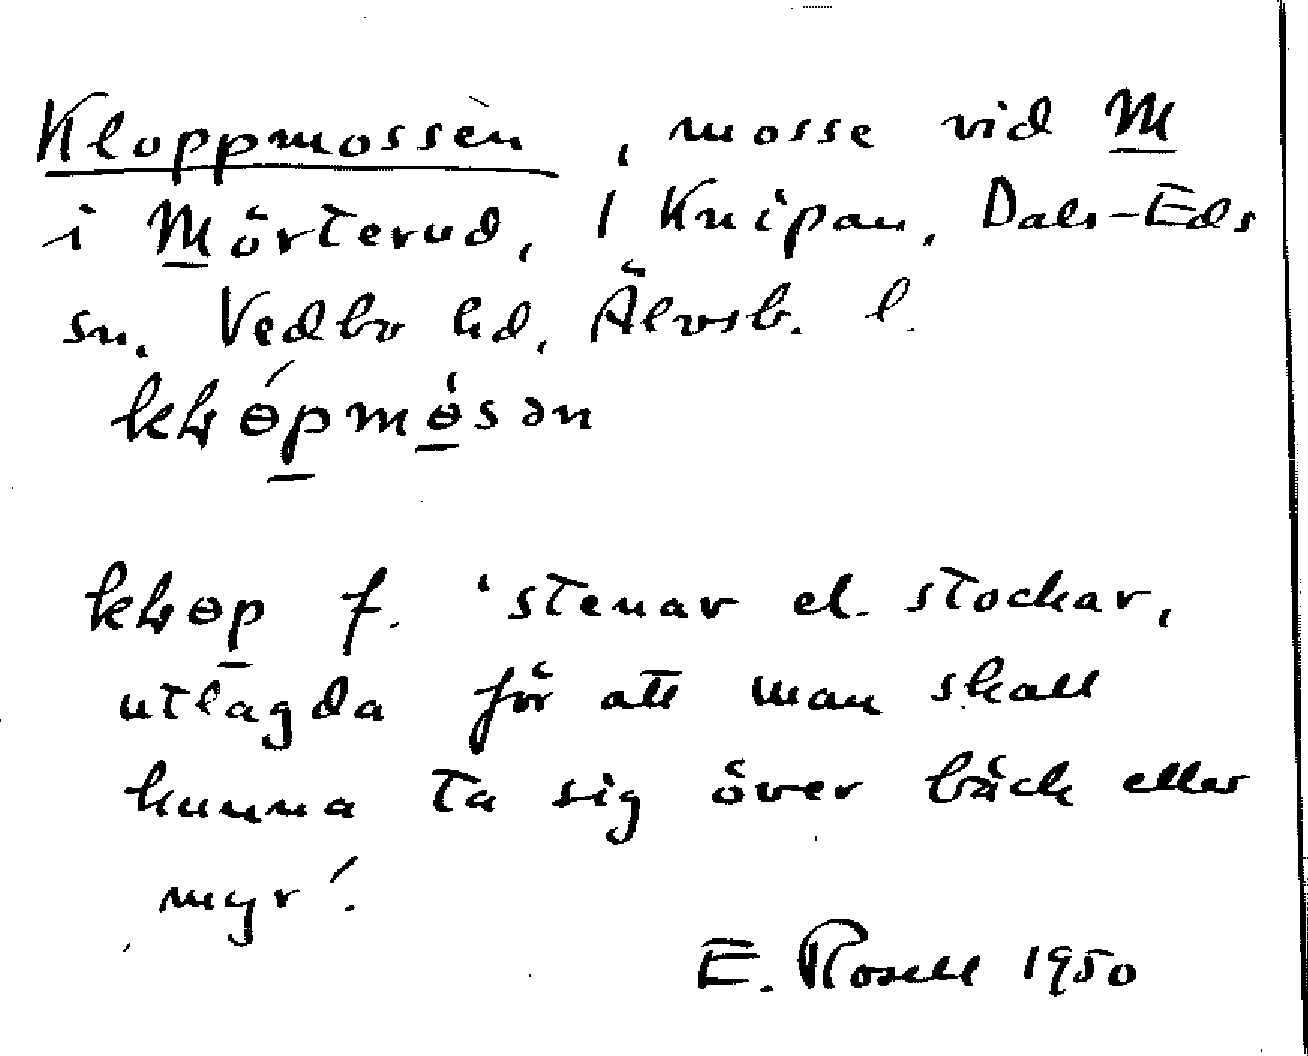 Kloppmossèn, mosse vid M
i Mörterud, 1 Knipan, Dals-Eds
sn. Vedbo hd, Älvsb. l.
kḷɵ́pmɵ̀sən
kḷɵp f. 'stenar el. stockar,
utlagda för att man skall
kunna ta sig över bäck eller
myr'.
E. Rosell 1950